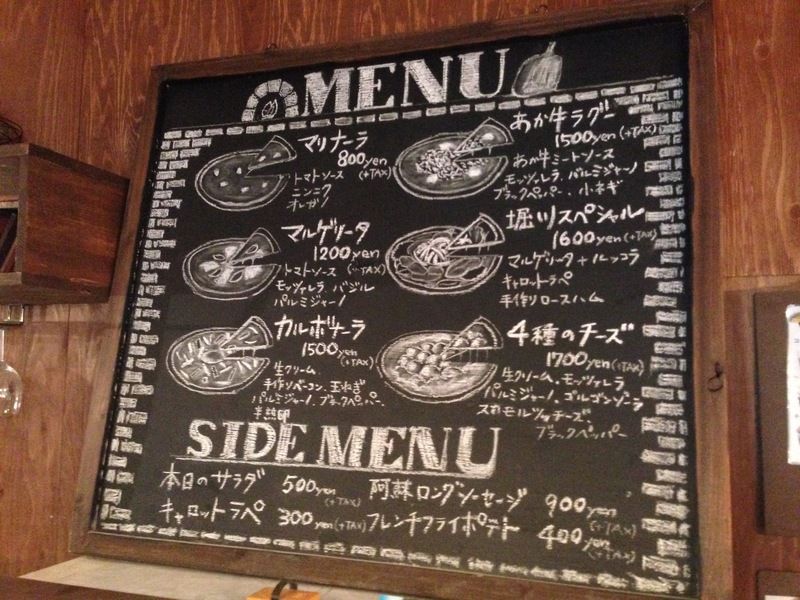 MENU
マリナーラ
800yen
(+TAX)
トマトソース
ニンニク
オレガノ
マルゲリータ
1200yen
(+TAX)
トマトソース
モッツァレラ、バジル
パルミジャーノ
カルボナーラ
1500yen
(+TAX)
生クリーム
手作りベーコン、玉ねぎ
パルミジャーノ、ブラックペッパー、
半熟卵
あか牛ラグー
1500yen (+TAX)
あか牛ミートソース
モッツァレラ、パルミジャーノ
ブラックペッパー、小ネギ
堀川スペシャル
1600yen (+TAX)
マルゲリータ+ルッコラ
キャロットラペ
手作りロースハム
4種のチーズ
1700yen (+TAX)
生クリーム、モッツァレラ
パルミジャーノ、ゴルゴンゾーラ
スカモルツァチーズ
ブラックペッパー
SIDE MENU
本日のサラダ 500yen (+TAX)
キャロットラペ 300yen (+TAX)
阿蘇ロングソーセージ 900yen (+TAX)
フレンチフライポテト 400yen (+TAX)